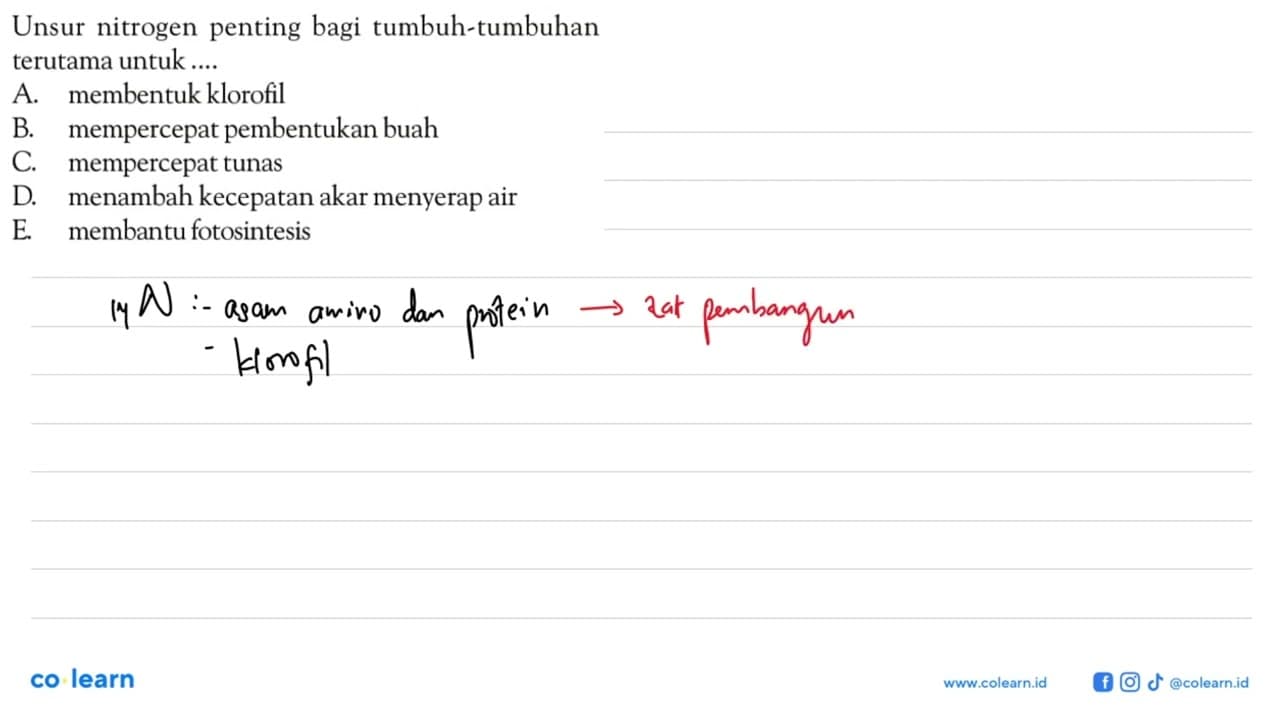 Unsur nitrogen penting bagi tumbuh-tumbuhan
terutama untuk ....
A. membentuk klorofil
B. mempercepat pembentukan buah
C. mempercepat tunas
D. menambah kecepatan akar menyerap air
E. membantu fotosintesis
14 N :- asam amino dan protein → zat pembangun
- klorofil
co learn
www.colearn.id
@colearn.id